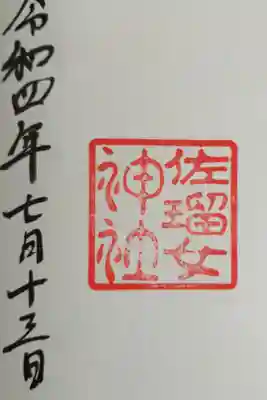 佐瑠女
神社
令和四年七月十三日